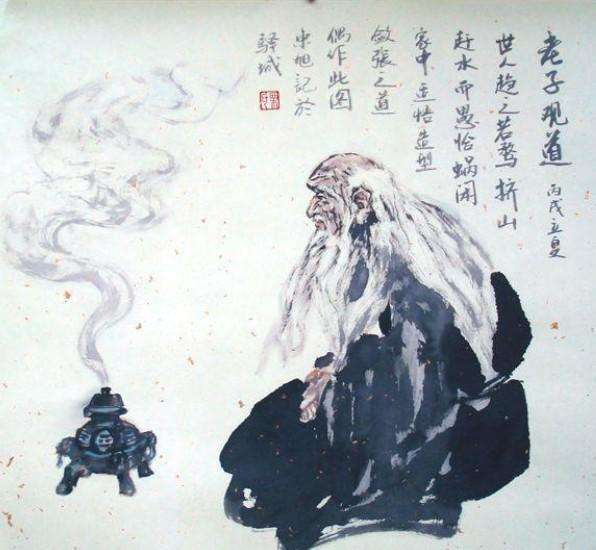 老子观道 丙戌立夏
世人趋之若鹜挤山
赶水而愚恰蜗闲
家中适悟造型
敛张之道
偶作此图
旭记於
驿城